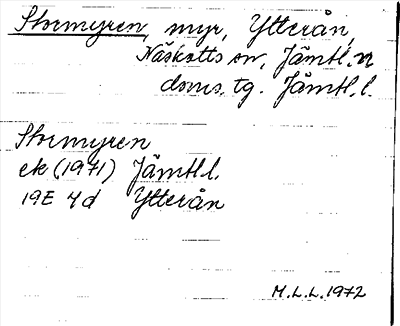 Stormyren, myr, Ytterån,
Näskotts sn, Jämtl. n
doms. tg. Jämtl. l.
Stormyren
ek (1971) Jämtl l.
19E 4d Ytterån
M.L.L. 1972